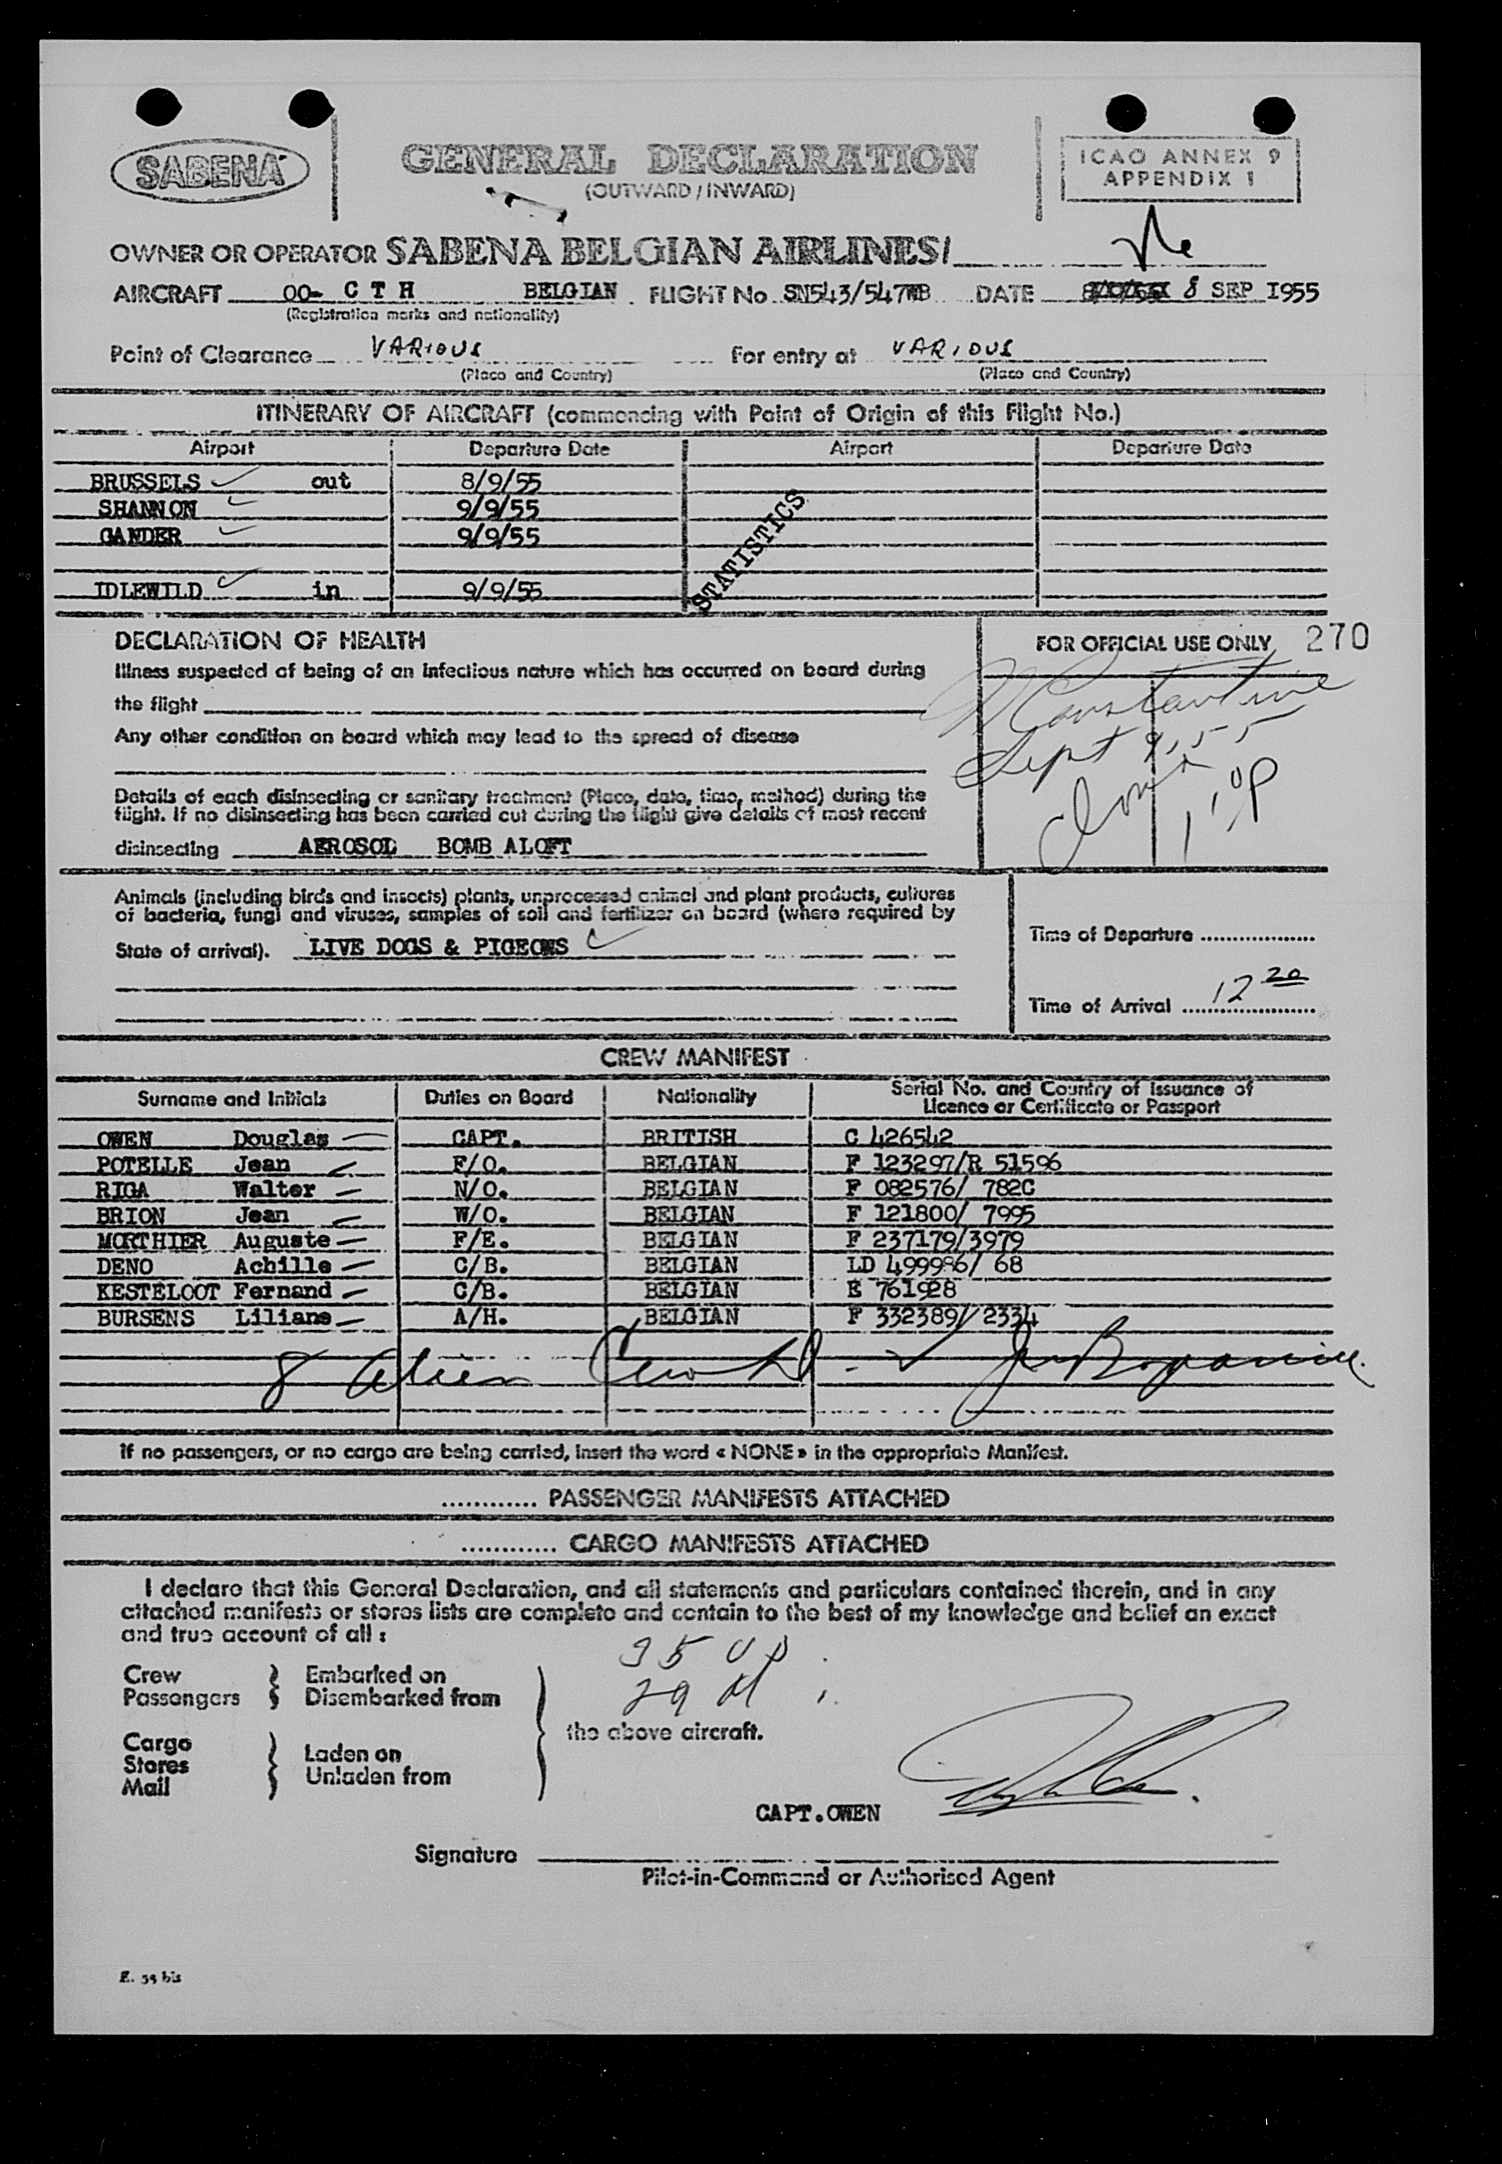 SABENA
GENERAL DECLARATION
(OUTWARD / INWARD)
ICAO ANNEX 9
APPENDIX 1
OWNER OR OPERATOR SABENA BELGIAN AIRLINES/
AIRCRAFT OO- C T H BELGIAN FLIGHT No SN543/547WB DATE 8 SEP 1955
(Registration marks and nationality)
Point of Clearance VARIOUS For entry at VARIOUS
(Place and Country) (Place and Country)
ITINERARY OF AIRCRAFT (commencing with Point of Origin of this Flight No.)
Airport Departure Date Airport Departure Date
BRUSSELS out 8/9/55
SHANNON 9/9/55
GANDER 9/9/55
STATISTICS
IDLEWILD in 9/9/55
DECLARATION OF HEALTH
FOR OFFICIAL USE ONLY 270
Illness suspected of being of an infectious nature which has occurred on board during
the flight
Constantine
Any other condition on board which may lead to the spread of disease
Sept 9, 55
Details of each disinsecting or sanitary treatment (Place, date, time, method) during the
flight. If no disinsecting has been carried out during the flight give details of most recent
disinsecting AEROSOL BOMB ALOFT
Animals (including birds and insects) plants, unprocessed animal and plant products, cultures
of bacteria, fungi and viruses, samples of soil and fertilizer on board (where required by
State of arrival). LIVE DOGS & PIGEONS
Time of Departure
Time of Arrival 12 20
CREW MANIFEST
Surname and Initials Duties on Board Nationality Serial No. and Country of Issuance of Licence or Certificate or Passport
OWEN Douglas CAPT. BRITISH C 426542
POTELLE Jean F/O. BELGIAN F 123297/R 51596
RIGA Walter N/O. BELGIAN F 082576/ 782C
BRION Jean W/O. BELGIAN F 121800/ 7995
MORTHIER Auguste F/E. BELGIAN F 237179/3979
DENO Achille C/B. BELGIAN LD 499986/ 68
KESTELOOT Fernand C/B. BELGIAN E 761928
BURSENS Liliane A/H. BELGIAN F 332389/ 2334
8 Alien Crew
If no passengers, or no cargo are being carried, insert the word « NONE » in the appropriate Manifest.
............ PASSENGER MANIFESTS ATTACHED
............ CARGO MANIFESTS ATTACHED
I declare that this General Declaration, and all statements and particulars contained therein, and in any
attached manifests or stores lists are complete and contain to the best of my knowledge and belief an exact
and true account of all :
35 US
Crew Embarked on
29 Al
Passengers Disembarked from
the above aircraft.
Cargo
Stores Laden on
Mail Unladen from
CAPT. OWEN
Signature
Pilot-in-Command or Authorised Agent
E. 55 bis